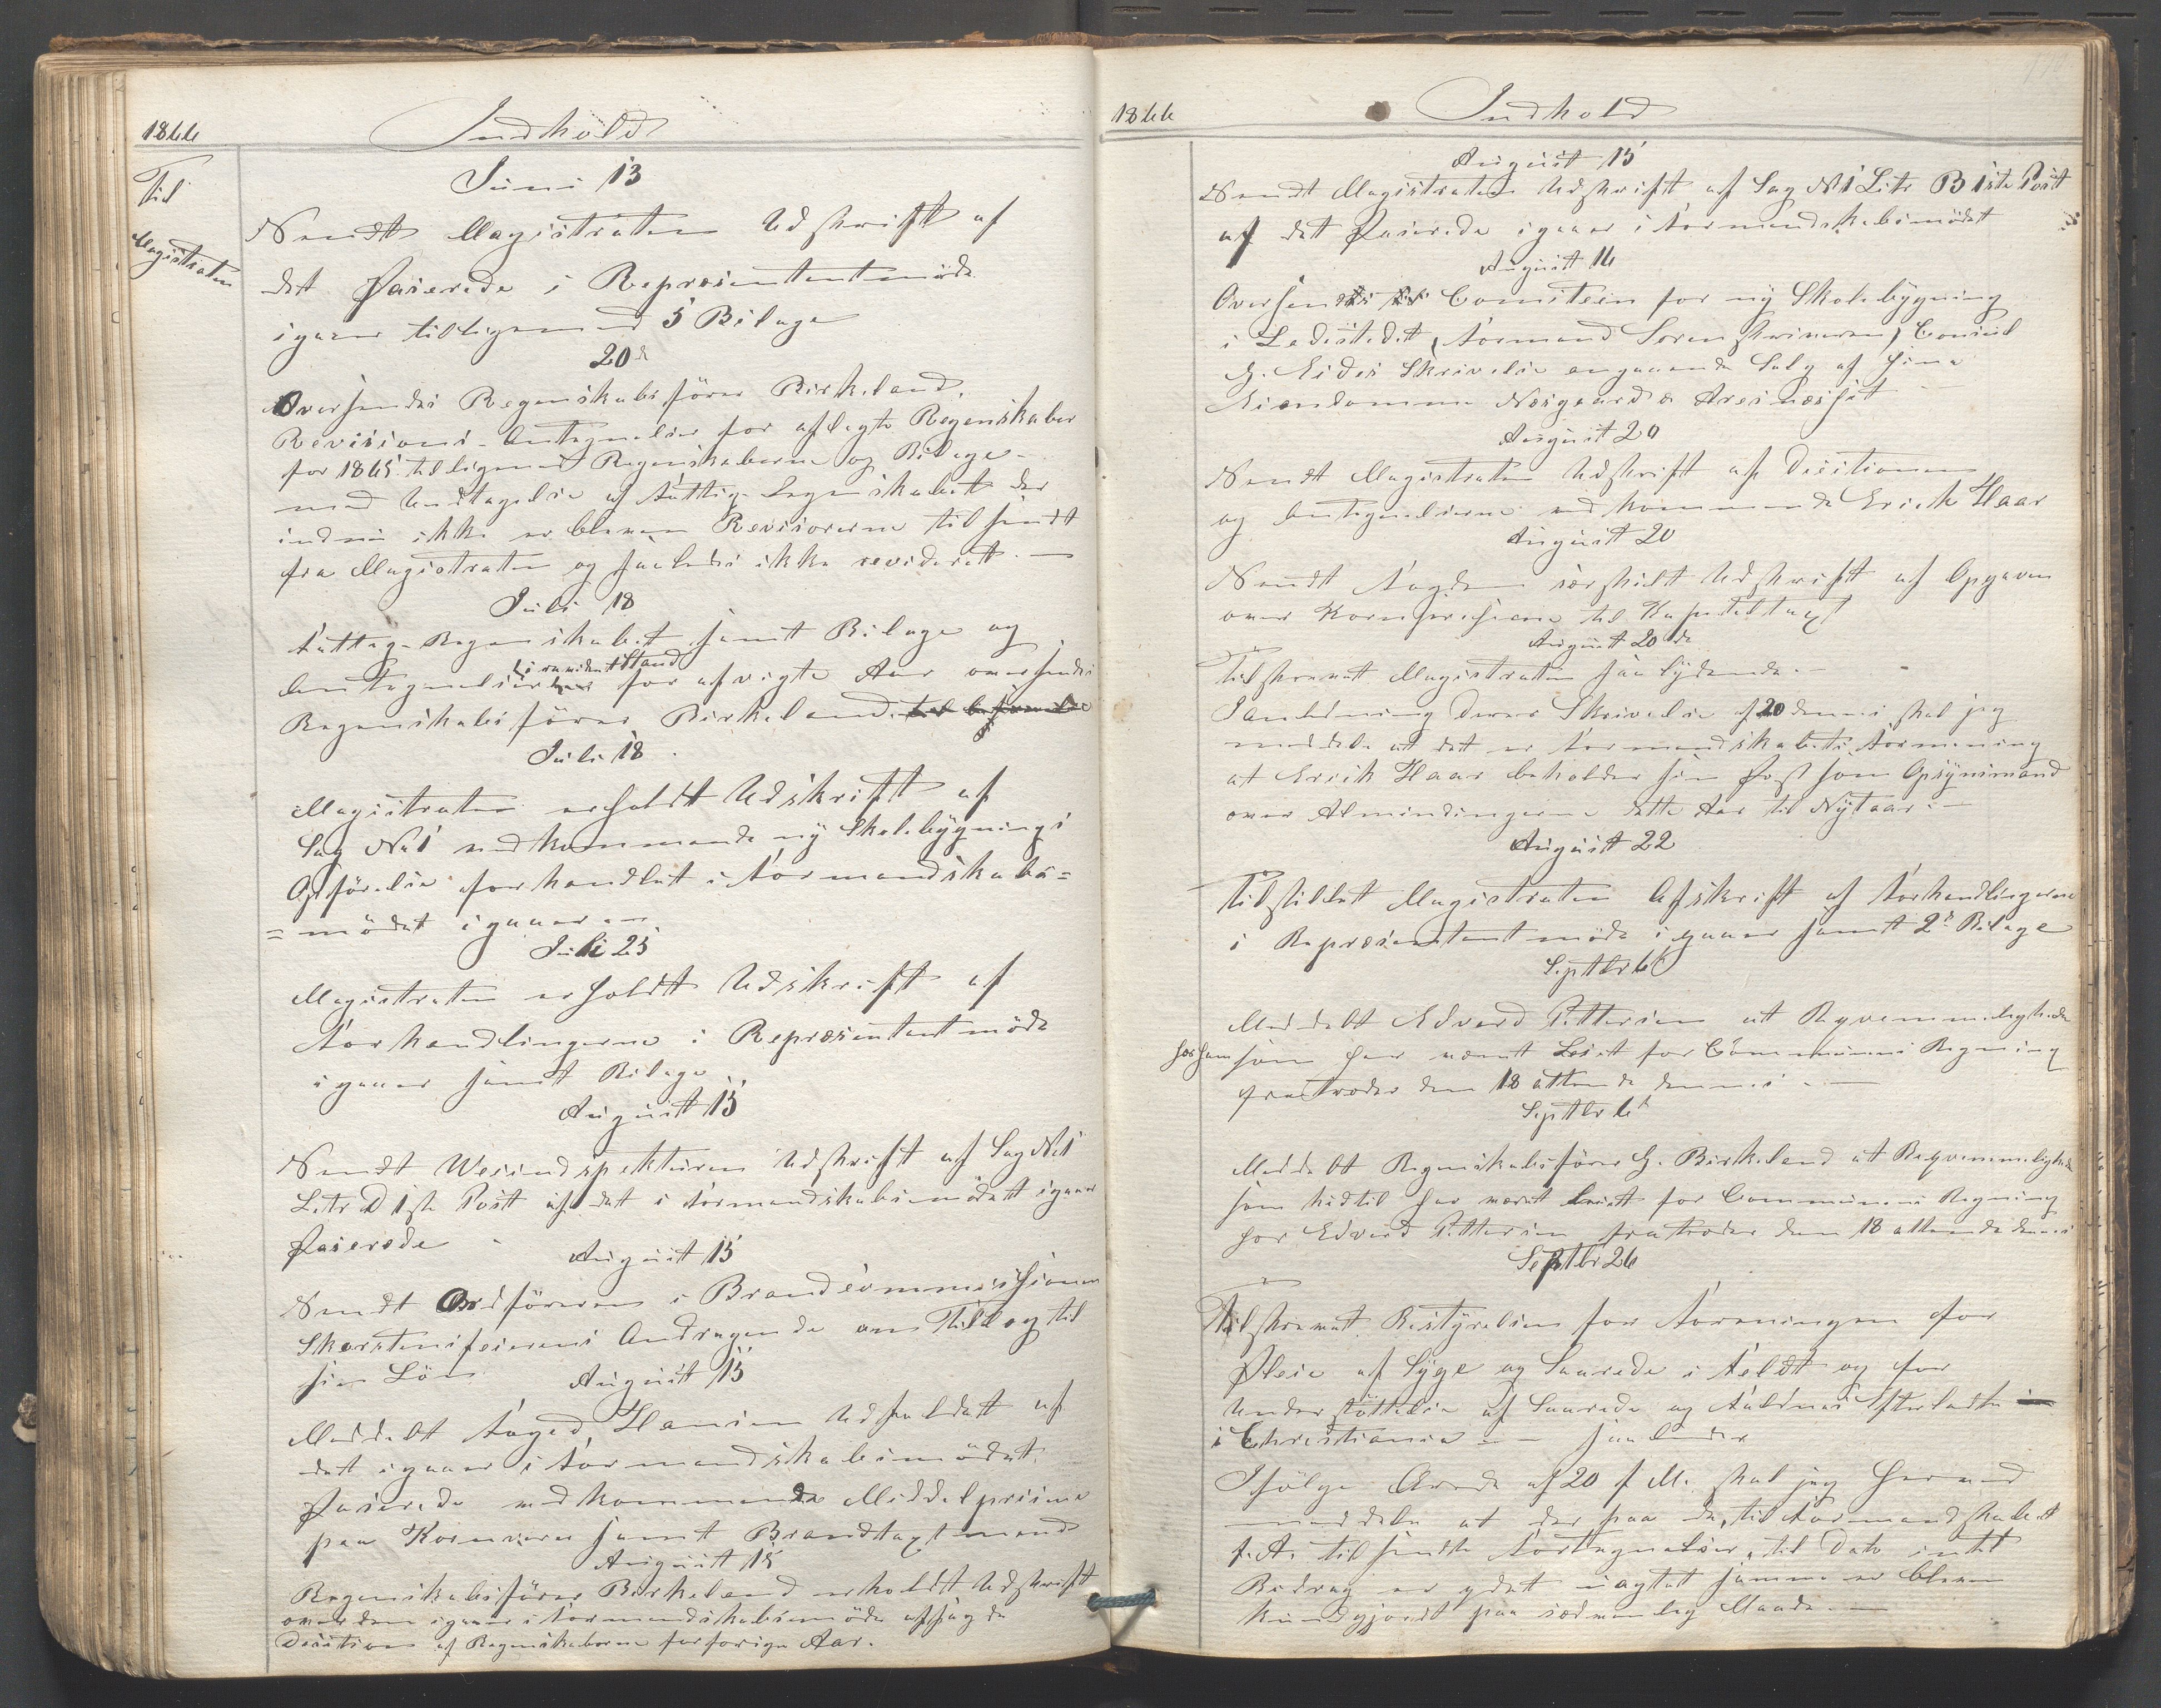 1866
Indhold
Til
Magistraten
Juni 13
Sendt Magistraten Udskrift af
det Passerede i Repræsentantmöde
igaar tilligemed 5 Bilage
20de
Oversendes Regenskabsförer Birkeland
Revisions-Antegnelser for aflagte Regenskaber
for 1865 tilligemed Regenskaberne og Bilage -
med Undtagelse af Fattig-Regenskabet der
indnu ikke er bleven Revisorerne tilsendt
fra Magistraten og saaledes ikke revideret. -
Juli 18
Fattig-Regenskabet samt Bilage og
i revidert Stand
Antegnelser for afvigte Aar oversendes
Regenskabsförer Birkeland
Juli 18
Magistraten erholdt Udskrift af
Sag No 1 vedkommende ny Skolebygnings
Opförelse forhandlet i Formandskabs=
=mödet igaar -
Juli 25
Magistraten erholdt Udskrift af
Forhandlingerne i Repræsentantmöde
igaar samt Bilage
August 15
Sendt Veiindspekturen Udskrift af Sag No 1
Litr D 1ste Post af det i Formandskabsmödett igaar
Passerede -
August 15
Sendt Ordföreren i Brandcommissionen
Skorstensfeierens Andragende om Tillæg til
sin Lön
August 15
Meddelt Foged Hansen Udfaldet af
det igaar i Formandskabsmödet
Passerede vedkommende Middelprisene
paa Kornvarer samt Brandtaxtmænd
August 15
Regenskabsförer Birkeland erholdt Udskrift
over den igaar i Formandskabsmöde afsagde
Desition af Regenskaberne for forrige Aar.
1866
Indhold
August 15
Sendt Magistraten Udskrift af Sag No 1 Litr B 1ste Post
af det Passerede igaar i Formandskabsmödet
August 16
Oversendes Comiteen for ny Skolebygning
i Ladestedet, Formand Sorenskriveren, Consul
G. Eides Skrivelse angaaende Salg af sine
Eiendomme Nesgaard & Aresneshit -
August 20
Sendt Magistraten Udskrift af Desitionen
og Antegnelserne vedkommende Erich Haar
August 20
Sendt Fogden særskilt Udskrift af Opgaven
over Kornpriserne til Kapitelstaxt
August 20de
Tilskrevet Magistraten saalydende. -
I Anledning Deres Skrivelse af 20 dennes skal jeg
meddele at det er Formandskabets Formening
at Erich Haar beholder sin Post som Opsynsmand
over Almindingerne dette Aar til Nytaar. -
August 22
Tilstillet Magistraten Afskrift af Forhandlingerne
i Repræsentantmöde igaar samt 2de Bilage
Septbr 6
Meddelt Edvard Pettersen at Beqvemmeligheder
hos ham som har været Leiet for Communens Regning
fratræder den 18 attende dennes. -
Septbr 6te
Meddelt Regenskabsförer G. Birkeland at Beqvemmeligheder
som hidtil har været leiet for Communens Regning
hos Edvard Pettersen fratræder den 18 attende dennes
Septbr 26
Tilskrevet Bestyrelsen for Foreningen for
Pleie af Syge og Saarede i Feldt og for
Understöttelse af Saarede og Faldnes Efterladte
i Christiania - saalunder
Ifölge Ærede af 20 f. M. skal jeg herved
meddele at der paa de, til Formandskabet
f. A. tilsendte Fortegnelser, til Dato intet
Bidrag er ydet uagtet samme er bleven
kundgjordt paa sædvanlig Maade. -